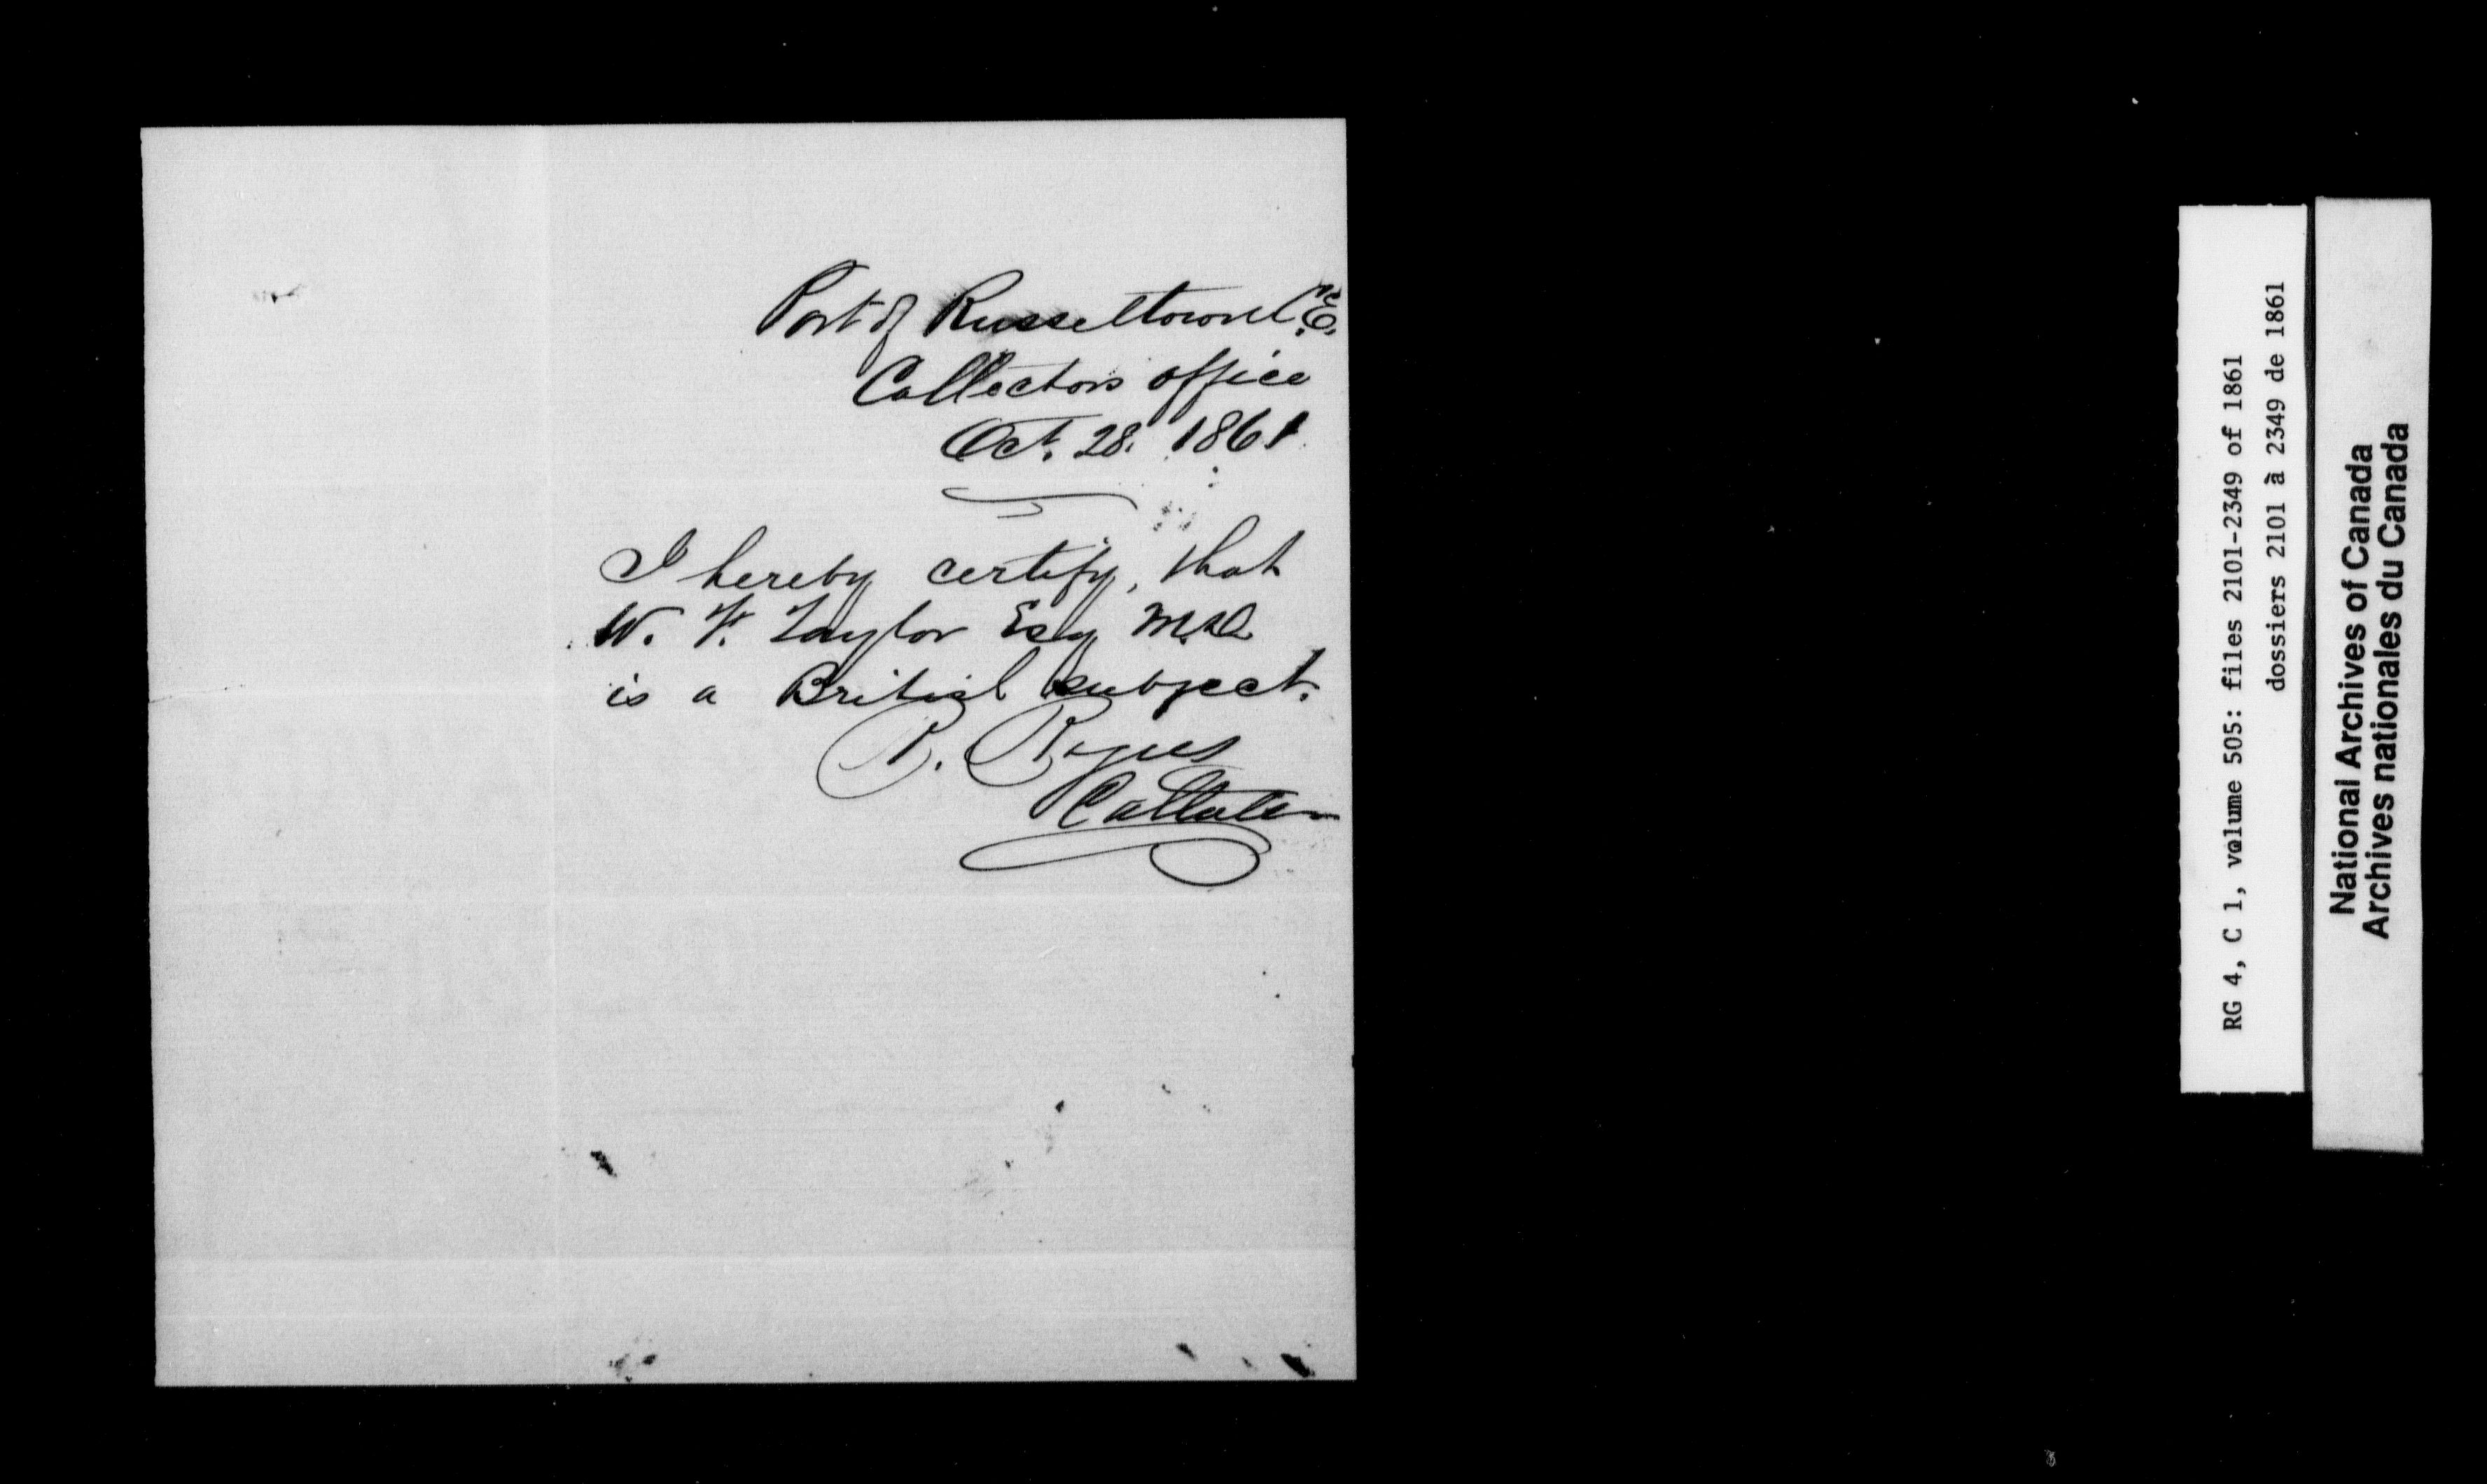 Port of Russeltown C.E.
Collectors office
Oct. 28. 1861
I hereby certify, that
W. F. Taylor Esq M.D.
is a British subject.
R.
Collector
RG 4, C 1, volume 505: files 2101-2349 of 1861
dossiers 2101 à 2349 de 1861
National Archives of Canada
Archives nationales du Canada